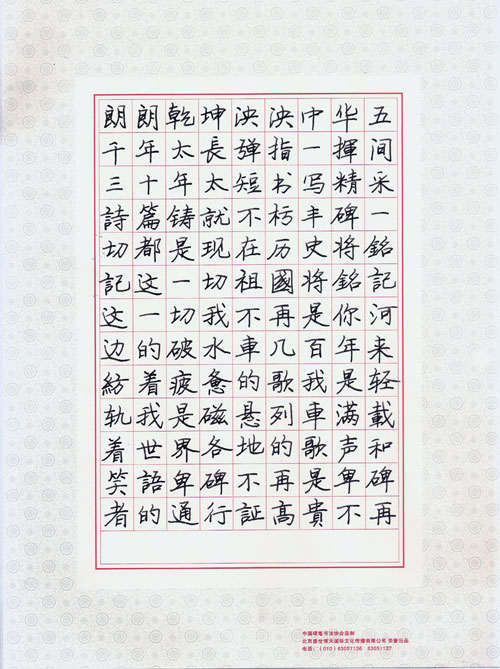 朗朗乾坤泱泱中华五
千年太長弹指一揮间
三十年太短书写精采
詩篇铸就不朽丰碑一
切都是现在历史将銘
記这一切祖國将銘記
这一切我不再是你河
边的破水車几百年来
紡着疲惫的歌我是轻
轨我是磁悬列車满載
着世界各地的歌声和
笑語卑碑不再是卑碑
者的通行証高貴不再
中国硬笔书法协会监制
北京盛世博天国际文化传播有限公司 荣誉出品
电话：（010）63051136 63051137